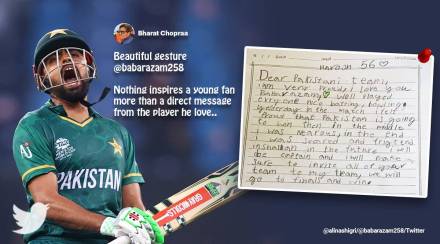 Bharat Chopraa
Beautiful gesture
@babarazam258
Nothing inspires a young fan
more than a direct message
from the player he love..
PAKISTAN
HAROON 56
Dear Pakistani team,
i am very proud, i love you
Babarazam well Played
every one nice batting, bowling.
yesterday in the match i felt
Proud that Pakistan is going
to won then in the middle
I was nearvus, in the end
I was scared and frigtend
inshallah in the future i will
be certain and i will make
sure to invite all of your
team to my team, we will
go to finals and win.
@alinashigri/@babarazam258/Twitter